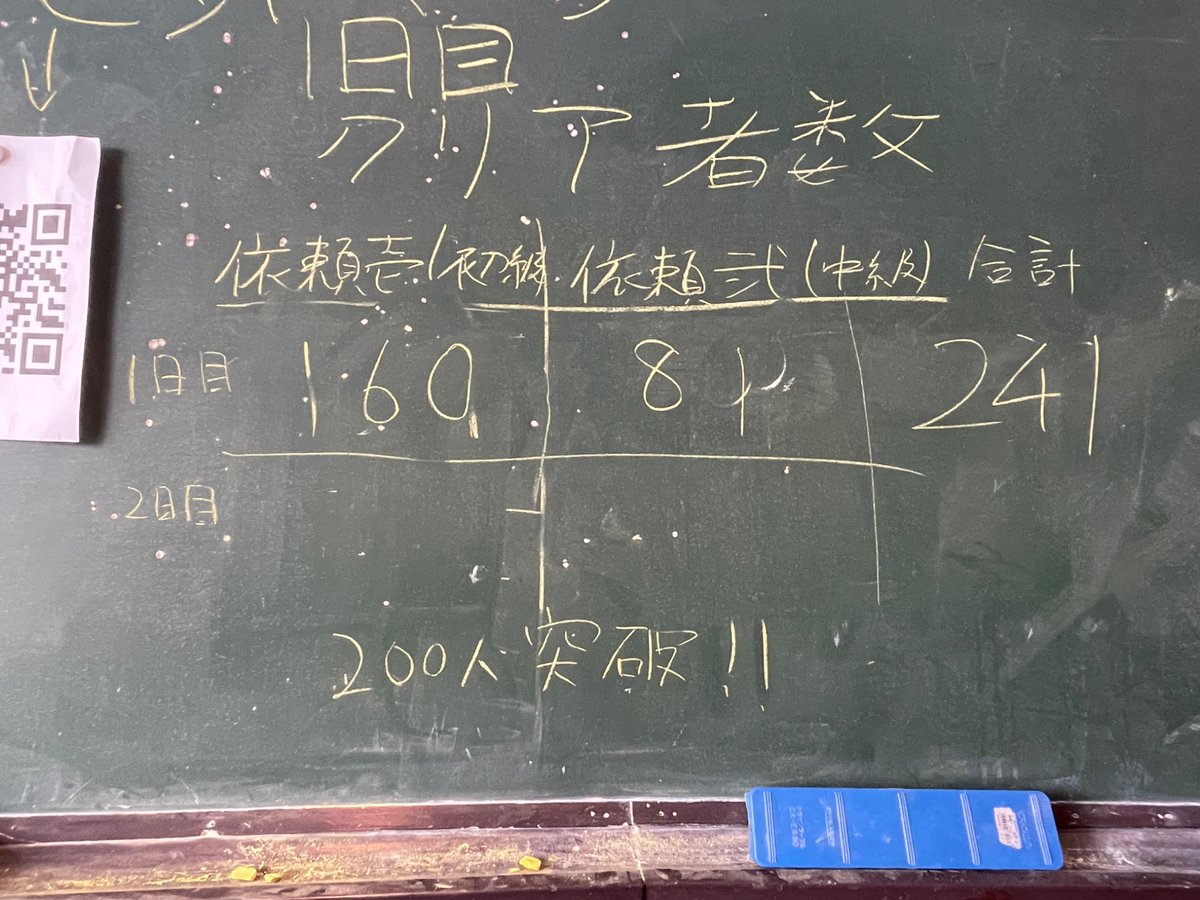 1日目
クリア者数
依頼壱(初級 依頼弐(中級) 合計
1日目 160 81 241
2日目
200人突破!!